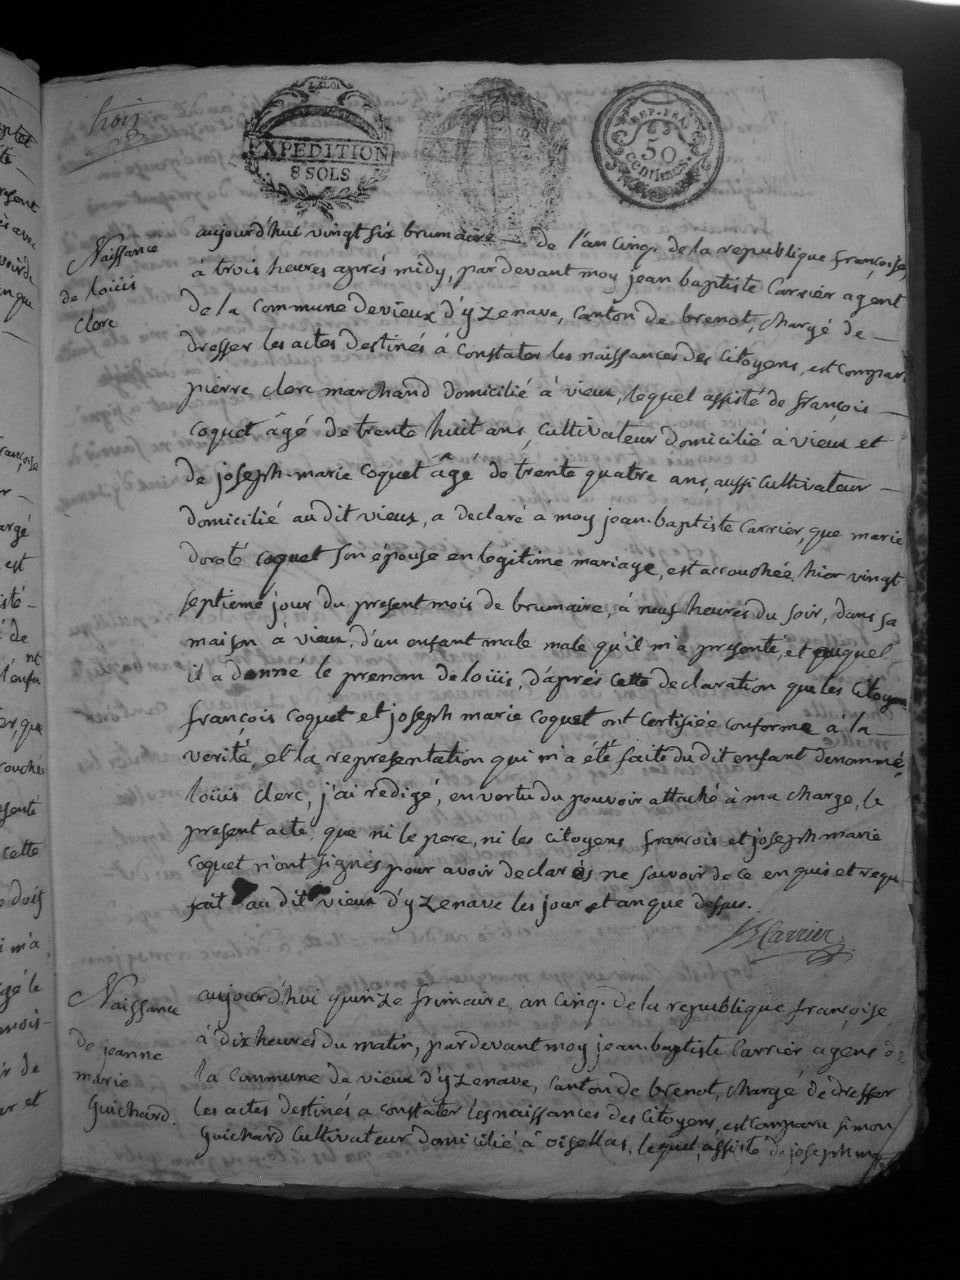 trois
LA LOI
EXPEDITION
8 SOLS
REP. FRA.
50
centimes.
Naissance
de loüis
clerc
aujourd'hui vingt six brumaire — de l'an cinq. de la republique françoise,
à trois heures après midy, par devant moy jean baptiste Carrier agent
de la Commune de vieux d'yzenave, Canton de brenot, chargé de —
dresser les actes destinés à constater les naissances des Citoyens, est comparu
pierre clerc marchand domicilié à vieux, lequel assisté de françois —
Coquet âgé de trente huit ans, Cultivateur domicilié à vieux et
de joseph-marie Coquet âgé de trente quatre ans, aussi Cultivateur —
domicilié au dit vieux, a declaré à moy jean-baptiste Carrier, que marie
doroté Coquet son épouse en legitime mariage, est accouchée hier vingt
septieme jour du present mois de brumaire, à neuf heures du soir, dans sa
maison à vieux, d'un enfant male male qu'il m'a presenté, et auquel
il a donné le prenom de loüis, d'après cette declaration que les Citoyens
françois Coquet et joseph marie Coquet ont certifiée conforme à la —
verité, et la representation qui m'a été faite du dit enfant denommé
loüis clerc, j'ai redigé, en vertu du pouvoir attaché à ma charge, le
present acte que ni le pere, ni les citoyens françois et joseph marie
Coquet n'ont signés pour avoir declarés ne savoir de ce enquis et requ
fait au dit vieux d'yzenave les jour et an que dessus.
Carrier
Naissance
de jeanne
marie
Guichard.
aujourd'hui quinze frimaire an cinq. de la republique françoise
à dix heures du matin, par devant moy jean-baptiste Carrier agent de
la Commune de vieux d'yzenave, Canton de brenot, chargé de dresser
les actes destinés a constater les naissances des Citoyens, est comparu simon
Guichard Cultivateur domicilié à oisellas, lequel assisté de joseph ma